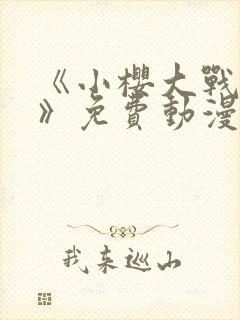 《小櫻大戰
》免費動漫
我来巡山